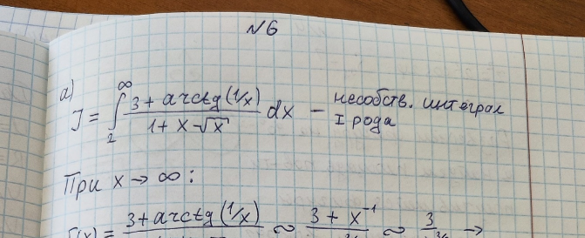 №6
а)
J = ∫₁^∞ (3 + arctg(1/x)) / (1 + x√x) dx — несобств. интеграл
I рода
При x → ∞ :
f(x) = (3 + arctg(1/x)) ∾ (3 + x⁻¹) ∾ 3 →